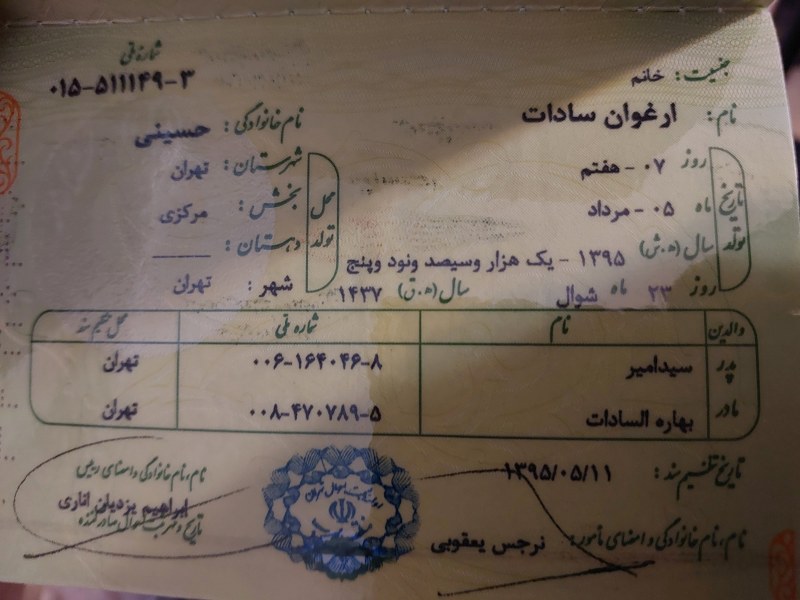 جنسیت: خانم
شماره ملی
۰۱۵-۵۱۱۱۴۹-۳
نام: ارغوان سادات
نام خانوادگی: حسینی
تاریخ تولد
روز ۰۷ - هفتم
ماه ۰۵ - مرداد
سال (ه.ش) ۱۳۹۵ - یک هزار وسیصد ونود وپنج
روز ۲۳ ماه شوال سال (ه.ق) ۱۴۳۷
محل تولد
شهرستان: تهران
بخش: مرکزی
دهستان:
شهر: تهران
والدین نام شماره ملی محل تنظیم سند
پدر سیدامیر ۰۰۶-۱۶۴۰۴۶-۸ تهران
مادر بهاره السادات ۰۰۸-۴۷۰۷۸۹-۵ تهران
تاریخ تنظیم سند: ۱۳۹۵/۰۵/۱۱
نام، نام خانوادگی و امضای مأمور: نرجس یعقوبی
نام، نام خانوادگی و امضای رییس
ابراهیم یزدیان اناری